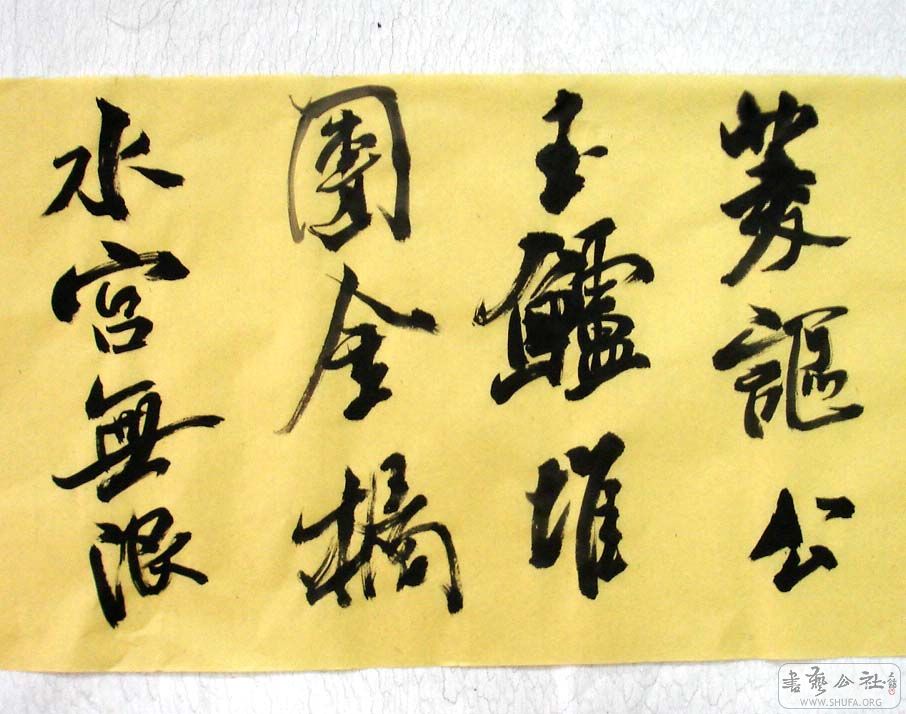 菱謳公
玉鱸堆
團金橘
水宮無限
書藝公社
WWW.SHUFA.ORG